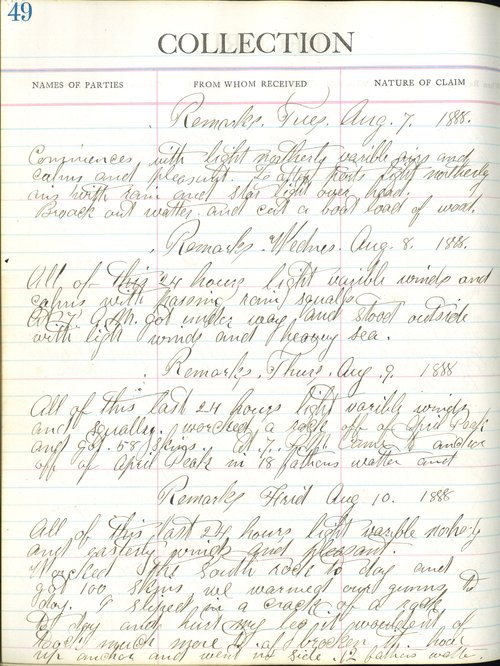 49
COLLECTION
NAMES OF PARTIES FROM WHOM RECEIVED NATURE OF CLAIM
Remarks. Tues. Aug. 7. 1888.
Cominences with light northerly varible airs and
calms and pleasant. Latter parts light northerly
airs with rain and star light over head.
Broack out watter and cut a boat load of wood.
Remarks. Wednes. Aug. 8. 1888.
All of this 24 hours light varible winds and
calms with passing rain squals
A.M. got under way and stood outside
with light winds and heavey sea.
Remarks. Thurs. Aug. 9. 1888
All of this last 24 hours light varible winds
and squally. worcked a rock off of April Peak
and got 58 skins. at 7. P.M. came to anchor
off of April Peak in 18 fathems watter and
Remarks Frid Aug. 10. 1888
All of this last 24 hours light varible nothely
and easterly winds and pleasant.
Worcked the South rock to day and
got 100 skins we warmed our guns to
day. I sliped in a crack of a rock
to day and hurt my leg it wouldent of
took much more to of brocken it. hove
up anchor and went 12 fathems watter.